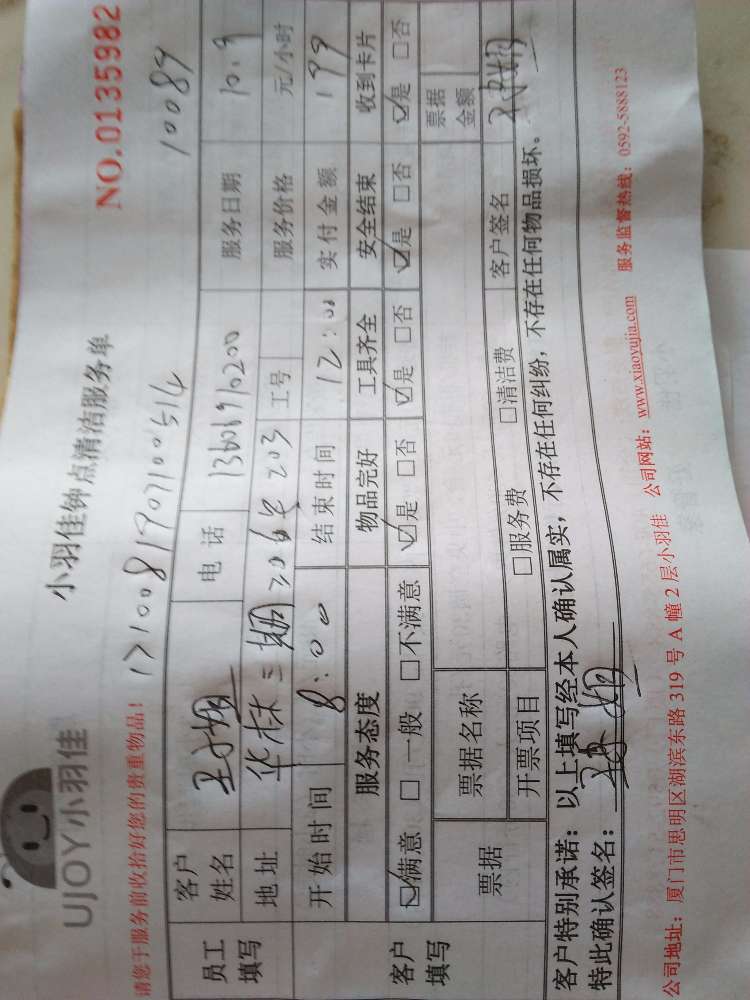 UJOY小羽佳
小羽佳钟点清洁服务单
NO.0135982
请您于服务前收拾好您的贵重物品！
10089
员工填写
客户姓名
电话 13606910200
服务日期 10.9
地址 华林三期206号203
工号
服务价格 元/小时
开始时间 8:00
结束时间 12:00
实付金额 199
客户填写
服务态度 物品完好 工具齐全 安全结束 收到卡片
☑满意 □一般 □不满意 ☑是 □否 ☑是 □否 ☑是 □否 ☑是 □否
票据
票据名称
票据金额
开票项目 □服务费 □清洁费
客户签名
客户特别承诺：以上填写经本人确认属实，不存在任何纠纷，不存在任何物品损坏。
特此确认签名：
公司地址：厦门市思明区湖滨东路 319 号 A 幢 2 层小羽佳 公司网站：www.xiaoyujia.com 服务监督热线：0592-5888123